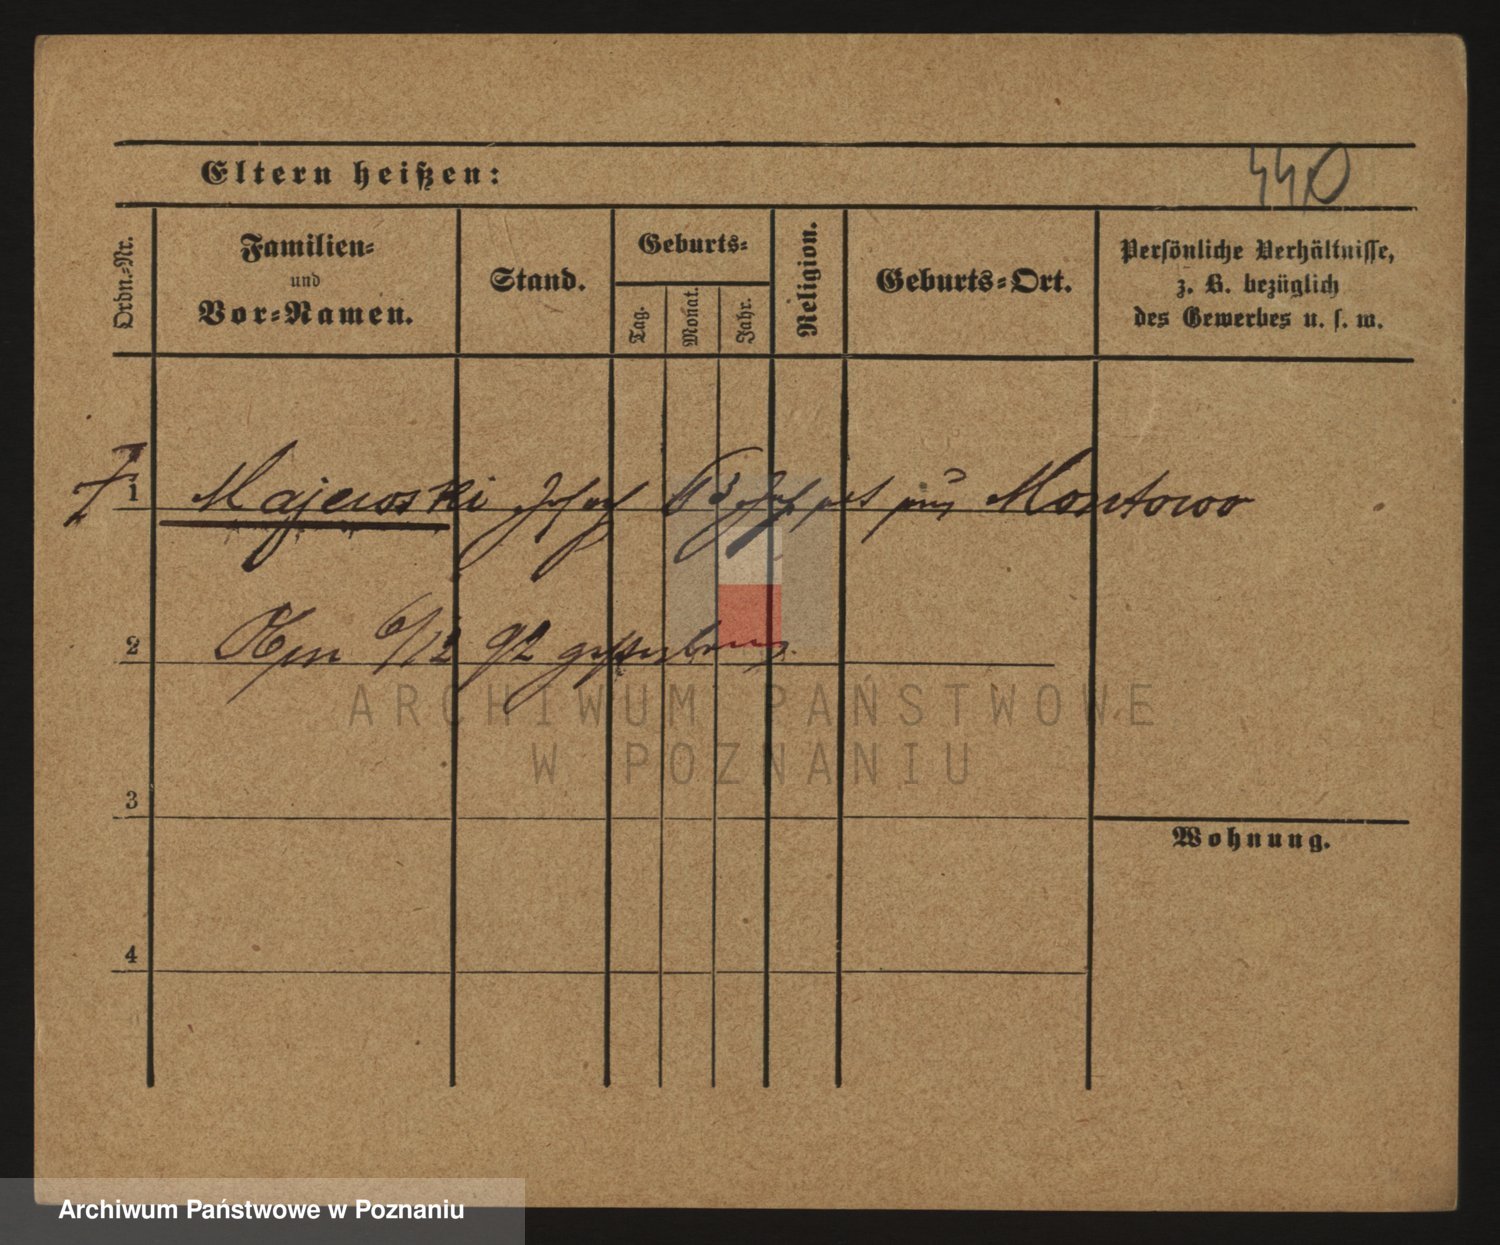 Eltern heißen:
440
Ordn.-Nr.
Familien-
und
Vor-Namen.
Stand.
Geburts-
Tag.
Monat.
Jahr.
Religion.
Geburts-Ort.
Persönliche Verhältnisse,
z. B. bezüglich
des Gewerbes u. s. w.
1 Majewski Josef 63 Jahr alt aus Montowo
2 Am 6/12 92 gestorben.
3
Wohnung.
4
ARCHIWUM PAŃSTWOWE
W POZNANIU
Archiwum Państwowe w Poznaniu